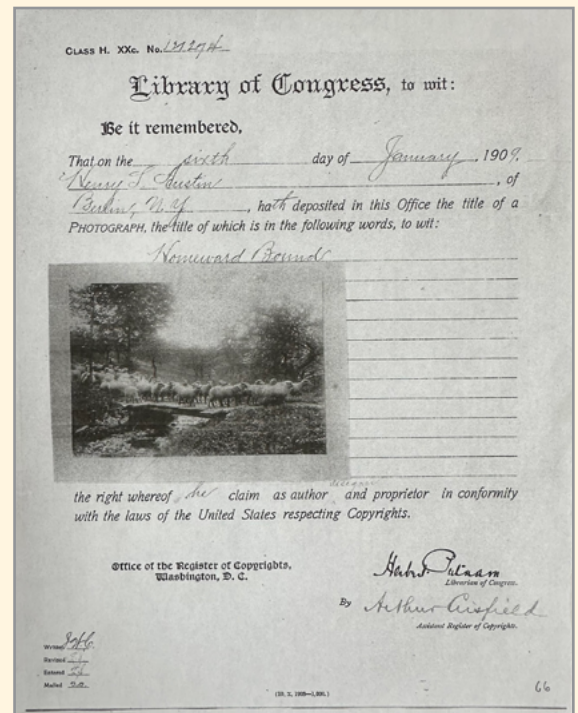 CLASS H. XXc. No.
Library of Congress, to wit:
Be it remembered,
That on the sixth day of January, 1909.
Henry S. Austin, of
Berlin, N.Y., hath deposited in this Office the title of a
PHOTOGRAPH, the title of which is in the following words, to wit:
Homeward Bound
designer
the right whereof he claim as author and proprietor in conformity
with the laws of the United States respecting Copyrights.
Office of the Register of Copyrights,
Washington, D. C.
Herbert Putnam
Librarian of Congress.
By Arthur Crisfield
Assistant Register of Copyrights.
Written
Revised
Entered
Mailed
66